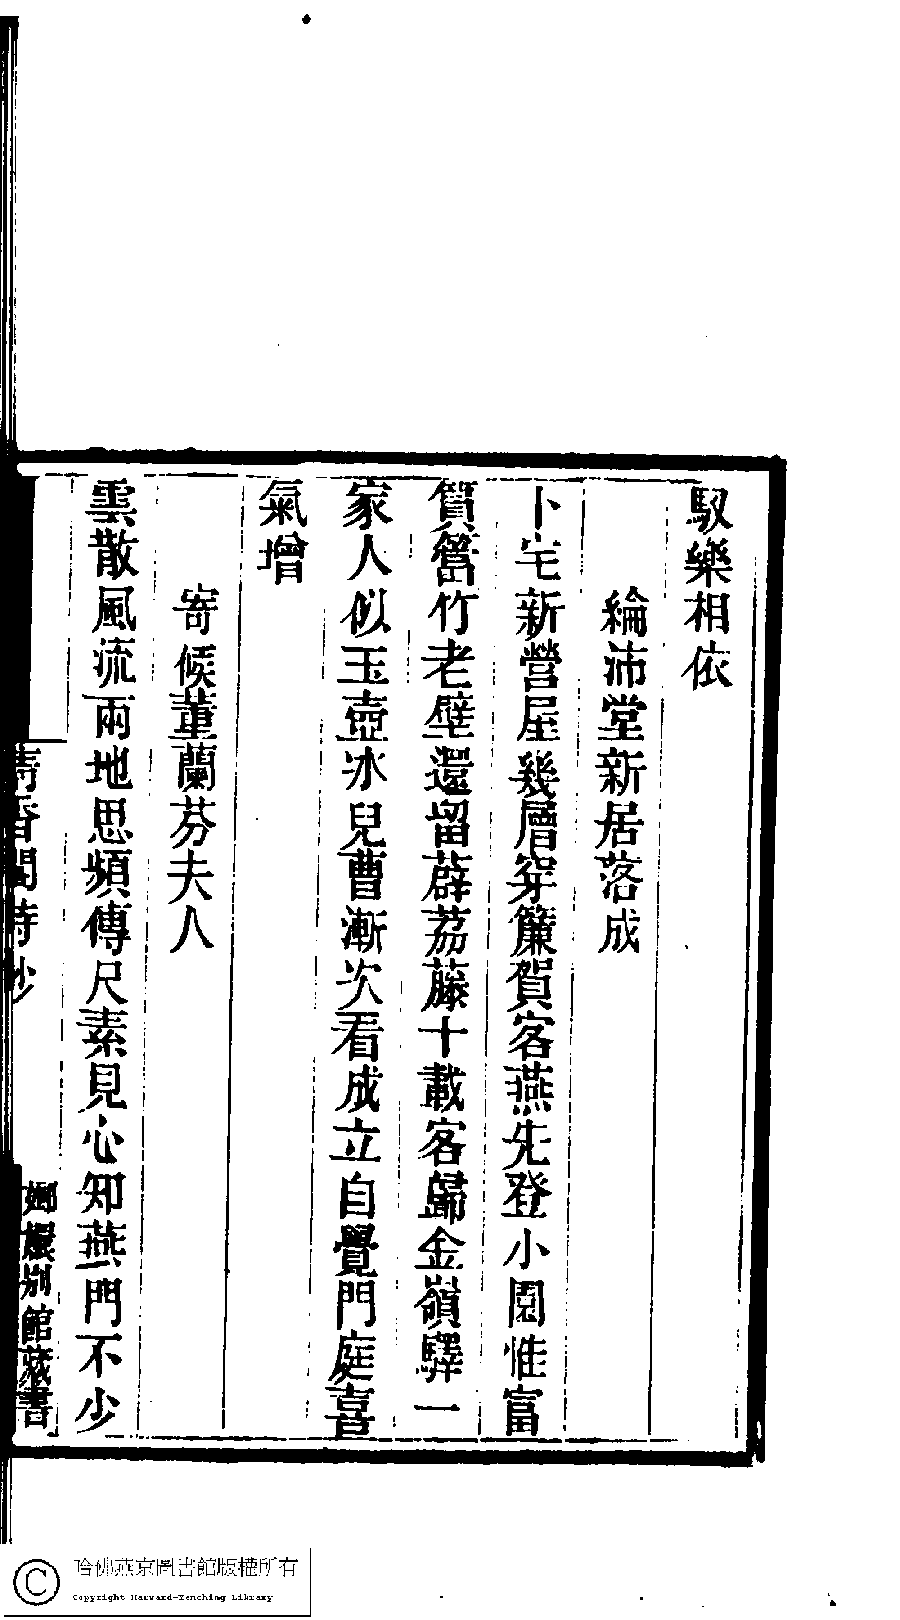 馭樂相依
綸沛堂新居落成
卜宅新營屋幾層穿簾賀客燕先登小園惟富
篔簹竹老壁還留薜荔藤十載客歸金嶺驛一
家人似玉壺冰兒曹漸次看成立自覺門庭喜
氣增
寄候董蘭芬夫人
雲散風流兩地思頻傳尺素見心知燕門不少
清香閣詩鈔
嫏嬛別館藏書
哈佛燕京圖書館版權所有
Copyright Harvard-Yenching Library